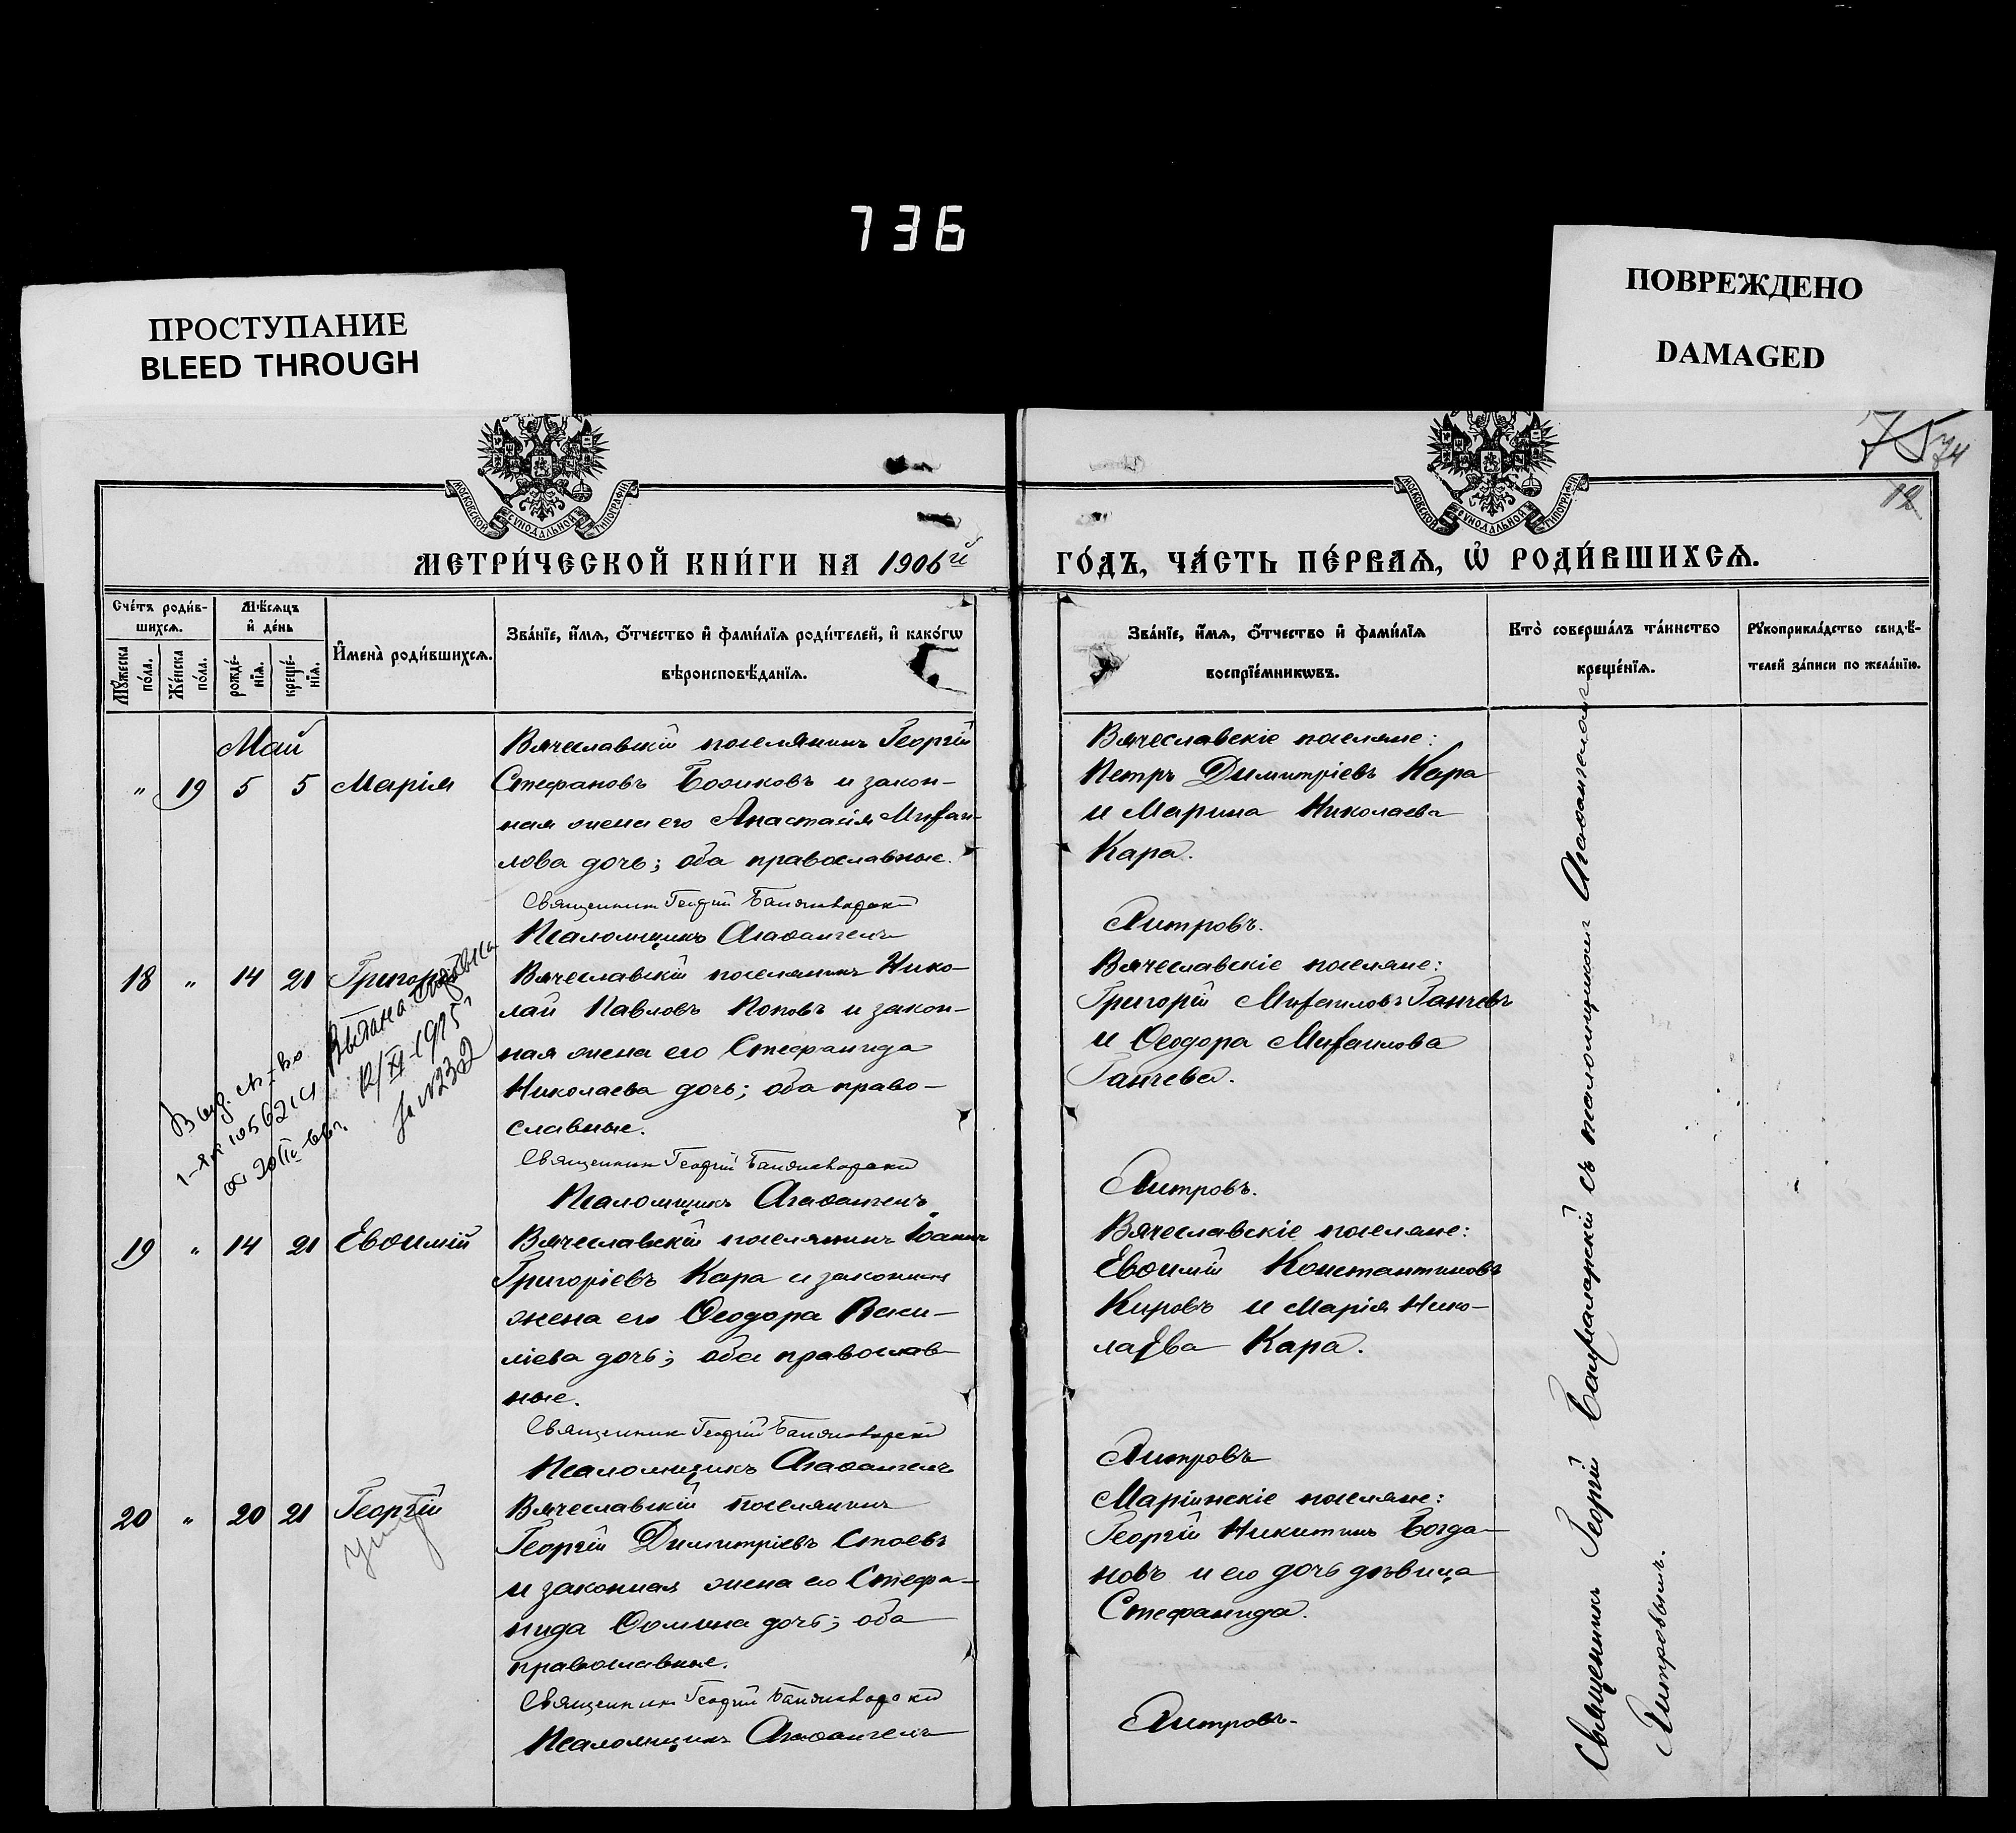 736
ПРОСТУПАНИЕ
BLEED THROUGH
ПОВРЕЖДЕНО
DAMAGED
75 74
12
МОСКОВСКОЙ СѴНОДАЛЬНОЙ ТИПОГРАФІИ
МОСКОВСКОЙ СѴНОДАЛЬНОЙ ТИПОГРАФІИ
МЕТРИ́ЧЕСКОЙ КНИ́ГИ НА 1906й
ГО́ДЪ, ЧА́СТЬ ПЕ́РВАѦ, Ѡ҆ РОДИ́ВШИХСѦ.
Сче́тъ роди́в-
шихсѧ.
Мꙋ́жеска по́ла.
Же́нска по́ла.
Мѣ́сѧцъ
и҆ де́нь
рожде́-
нїѧ.
креще́-
нїѧ.
И҆мена̀ роди́вшихсѧ.
Зва́нїе, и҆́мѧ, ѻ҆́тчество и҆ фами́лїѧ роди́телей, и҆ како́гѡ
вѣроисповѣ́данїѧ.
Зва́нїе, и҆́мѧ, ѻ҆́тчество и҆ фами́лїѧ
воспрїе́мникѡвъ.
Кто̀ соверша́лъ та́инство
креще́нїѧ.
Рꙋкоприкла́дство свидѣ́-
телей за́писи по жела́нїю.
Май
" 19 5 5 Марія
Вячеславскій поселянинъ Георгій
Стефановъ Божиковъ и закон-
ная жена его Анастасія Михаи-
лова дочь; оба православные.
Священникъ Георгій
Псаломщикъ Агаѳангелъ
Вячеславскіе поселяне:
Петръ Димитріевъ Кара
и Марина Николаева
Кара.
Литровъ.
18 " 14 21 Григорій
Выдана
12/XI-1915
за №232
Выд. св-во
1-ЯИ 105621
Вячеславскій поселянинъ Нико-
лай Павловъ Поповъ и закон-
ная жена его Стефанида
Николаева дочь; оба право-
славные.
Священникъ Георгій
Псаломщикъ Агаѳангелъ
Вячеславскіе поселяне:
Григорій Михаиловъ Ганчевъ
и Ѳеодора Михаилова
Ганчева.
Литровъ.
19 " 14 21 Евѳимій
Вячеславскій поселянинъ Іоаннъ
Григоріевъ Кара и законная
жена его Ѳеодора Васи-
ліева дочь; оба православ-
ные.
Священникъ Георгій
Псаломщикъ Агаѳангелъ
Вячеславскіе поселяне:
Евѳимій Константиновъ
Кировъ и Марія Нико-
лаева Кара.
Литровъ
20 " 20 21 Георгій
Вячеславскій поселянинъ
Георгій Димитріевъ Стоевъ
и законная жена его Стефа-
нида Ѳомина дочь; оба
православные.
Священникъ Георгій
Псаломщикъ Агаѳангелъ
Маріинскіе поселяне:
Георгій Никитинъ Богда-
новъ и его дочь дѣвица
Стефанида.
Литровъ.
Священникъ Георгій съ псаломщикомъ Агаѳангеломъ
Литровымъ.